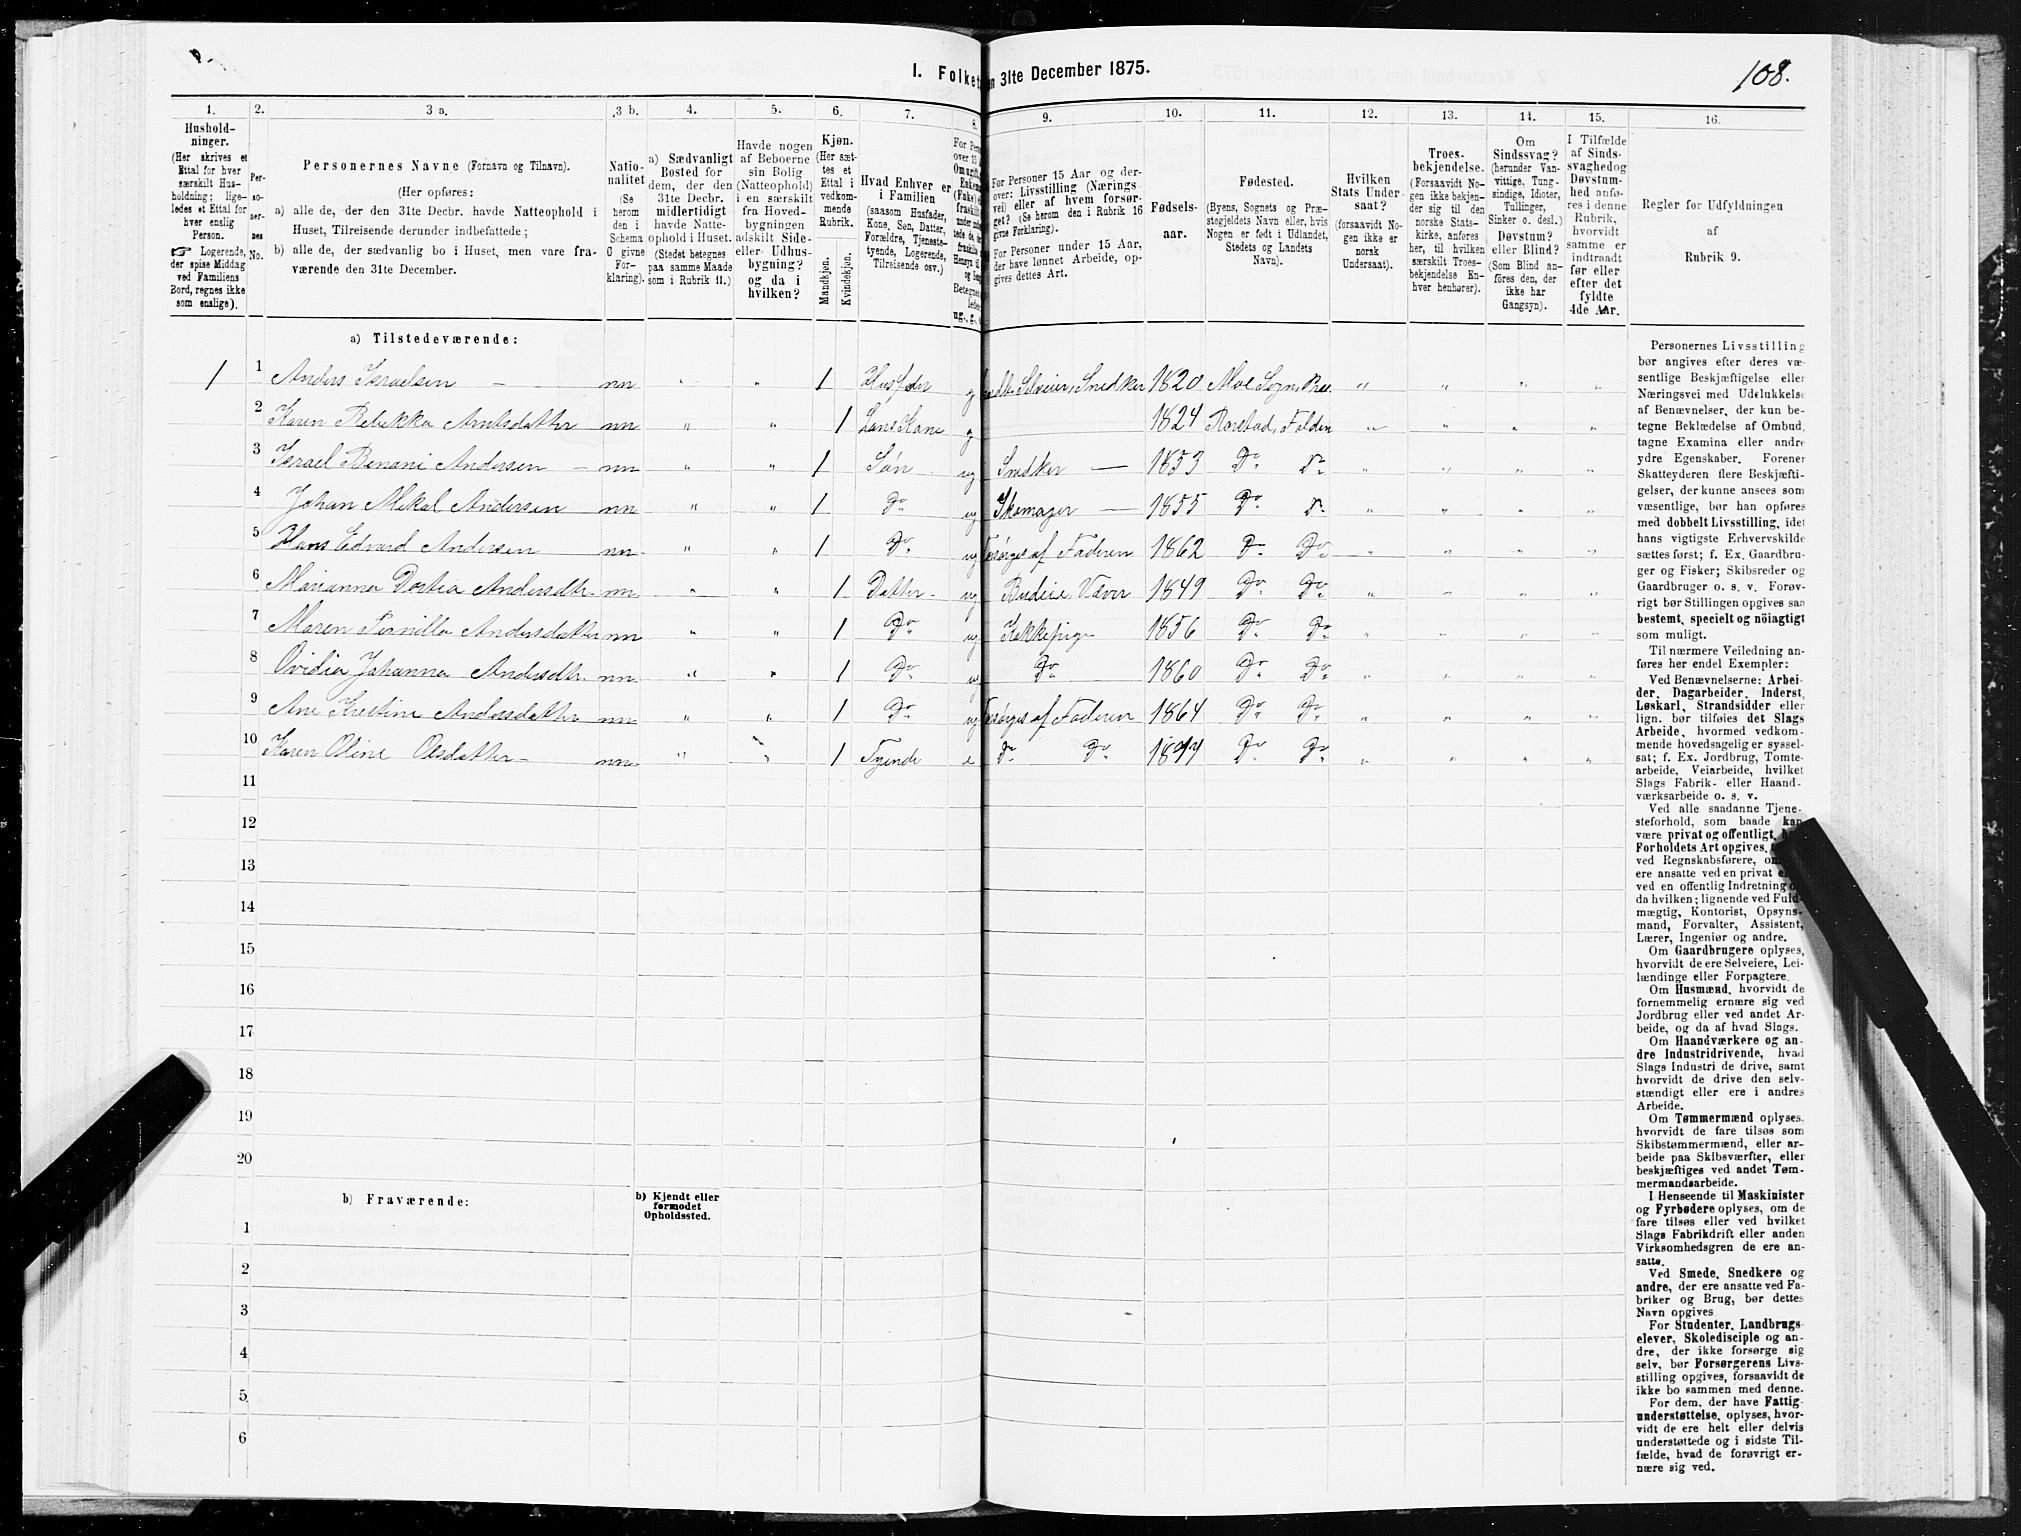 108.
I. Folket
en 31te December 1875.
1.
2.
3 a.
3 b.
4.
5.
6.
7.
8.
9.
10.
11.
12.
13.
14.
15.
16.
Hushold-
ninger.
(Her skrives et
Ettal for hver
særskilt Hus-
holdning; lige-
ledes et Ettal for
hver enslig
Person.
Logerende,
der spise Middag
ved Familiens
Bord, regnes ikke
som enslige).
Per-
so-
ner-
nes
No.
Personernes Navne (Fornavn og Tilnavn).
(Her opføres:
a) alle de, der den 31te Decbr. havde Natteophold i
Huset, Tilreisende derunder indbefattede;
b) alle de, der sædvanlig bo i Huset, men vare fra-
værende den 31te December.
Natio-
nalitet
(Se
herom
den i
Schema
O givne
For-
klaring).
a) Sædvanligt
Bosted for
dem, der den
31te Decbr.
midlertidigt
havde Natte-
ophold i Huset.
(Stedet betegnes
paa samme Maade
som i Rubrik 11.)
Havde nogen
af Beboerne
sin Bolig
(Natteophold)
i en særskilt
fra Hoved-
bygningen
adskilt Side-
eller Udhus-
bygning?
og da i
hvilken?
Kjøn.
(Her sæt-
tes et
Ettal i
vedkom-
mende
Rubrik.
Mandkjøn.
Kvindekjøn.
Hvad Enhver er
i Familien
(saasom Husfader,
Kone, Søn, Datter,
Forældre, Tjeneste-
tyende, Logerende,
Tilreisende osv.)
For Personer 15 Aar og der-
over: Livsstilling (Nærings-
vei) eller af hvem forsør-
get? (Se herom den i Rubrik 16
givne Forklaring).
For Personer under 15 Aar,
der have lønnet Arbeide, op-
gives dettes Art.
Fødsels-
aar.
Fødested.
(Byens, Sognets og Præ-
stegjeldets Navn eller, hvis
Nogen er født i Udlandet,
Stedets og Landets
Navn).
Hvilken
Stats Under-
saat?
(forsaavidt No-
gen ikke er
norsk
Undersaat).
Troes-
bekjendelse.
(Forsaavidt No-
gen ikke bekjen-
der sig til den
norske Stats-
kirke, anføres
her, til hvilken
særskilt Troes-
bekjendelse En-
hver henhører).
Om
Sindssvag?
(herunder Van-
vittige, Tung-
sindige, Idioter,
Tullinger,
Sinker o. desl.)
Døvstum?
eller Blind?
(Som Blind an-
føres den, der
ikke har
Gangsyn).
I Tilfælde
af Sinds-
svaghed og
Døvstum-
hed anfø-
res i denne
Rubrik,
hvorvidt
samme er
indtraadt
før eller
efter det
fyldte
4de Aar.
Regler for Udfyldningen
af
Rubrik 9.
a) Tilstedeværende:
1 1 Anders Israelsen nn " " 1 Husfader g Selveier, Snedker 1820 Moe Sogn, " " " "
2 Karen Rebekka Arntsdatter nn " " 1 Hans Kone g 1824 Rorstad, Folden " " " "
3 Israel Benoni Andersen nn " " 1 Søn ug Snedker 1853 Do Do " " " "
4 Johan Mikal Andersen nn " " 1 Do ug Skomager 1855 Do Do " " " "
5 Hans Edvard Andersen nn " " 1 Do ug Forsørges af Faderen 1862 Do Do " " " "
6 Marianna Dortea Andersdtr. nn " " 1 Datter ug Budeie, Væver 1849 Do Do " " " "
7 Maren Pernilla Andersdatter nn " " 1 Do ug Kokkepige 1856 Do Do " " " "
8 Ovidia Johanna Andersdtr. nn " " 1 Do ug Do 1860 Do Do " " " "
9 Ane Kristine Andersdatter nn " " 1 Do ug Forsørges af Faderen 1864 Do Do " " " "
10 Karen Oline Olsdatter nn " " 1 Tyende e Do Do Do Do " " " "
11
12
13
14
15
16
17
18
19
20
b) Fraværende:
b) Kjendt eller
formodet
Opholdssted.
1
2
3
4
5
6
Personernes Livsstilling
bør angives efter deres væ-
sentlige Beskjæftigelse eller
Næringsvei med Udelukkelse
af Benævnelser, der kun be-
tegne Beklædelse af Ombud,
tagne Examina eller andre
ydre Egenskaber. Forener
Skatteyderen flere Beskjæfti-
gelser, der kunne ansees som
væsentlige, bør han opføres
med dobbelt Livsstilling, idet
hans vigtigste Erhvervskilde
sættes først; f. Ex. Gaardbru-
ger og Fisker; Skibsreder og
Gaardbruger o. s. v. Forøv-
rigt bør Stillingen opgives saa
bestemt, specielt og nöiagtigt
som muligt.
Til nærmere Veiledning an-
føres her endel Exempler:
Ved Benævnelserne: Arbei-
der, Dagarbeider, Inderst,
Løskarl, Strandsidder eller
lign. bør tilføies det Slags
Arbeide, hvormed vedkom-
mende hovedsagelig er syssel-
sat; f. Ex. Jordbrug, Tomte-
arbeide, Veiarbeide, hvilket
Slags Fabrik- eller Haand-
værksarbeide o. s. v.
Ved alle saadanne Tjene-
steforhold, som baade kan
være privat og offentligt,
Forholdets Art opgives,
ved Regnskabsførere,
ere ansatte ved en privat
ved en offentlig Indretning
da hvilken; lignende ved Fuld-
mægtig, Kontorist, Opsyns-
mand, Forvalter, Assistent,
Lærer, Ingeniør og andre.
Om Gaardbrugere oplyses,
hvorvidt de ere Selveiere, Lei-
lændinge eller Forpagtere.
Om Husmænd, hvorvidt de
fornemmelig ernære sig ved
Jordbrug eller ved andet Ar-
beide, og da af hvad Slags.
Om Haandværkere og an-
dre Industridrivende, hvad
Slags Industri de drive, samt
hvorvidt de drive den selv-
stændigt eller ere i andres
Arbeide.
Om Tømmermænd oplyses,
hvorvidt de fare tilsøs som
Skibstømmermænd, eller ar-
beide paa Skibsværfter, eller
beskjæftiges ved andet Tøm-
mermandsarbeide.
I Henseende til Maskinister
og Fyrbødere oplyses, om de
fare tilsøs eller ved hvilket
Slags Fabrikdrift eller anden
Virksomhedsgren de ere an-
satte.
Ved Smede, Snedkere og
andre, der ere ansatte ved Fa-
briker og Brug, bør dettes
Navn opgives
For Studenter, Landbrugs-
elever, Skoledisciple og an-
dre, der ikke forsørge sig
selv, bør Forsørgerens Livs-
stilling opgives, forsaavidt de
ikke bo sammen med denne.
For dem, der have Fattig-
understøttelse, oplyses, hvor-
vidt de ere helt eller delvis
understøttede og i sidste Til-
fælde, hvad de forøvrigt er-
nære sig ved.